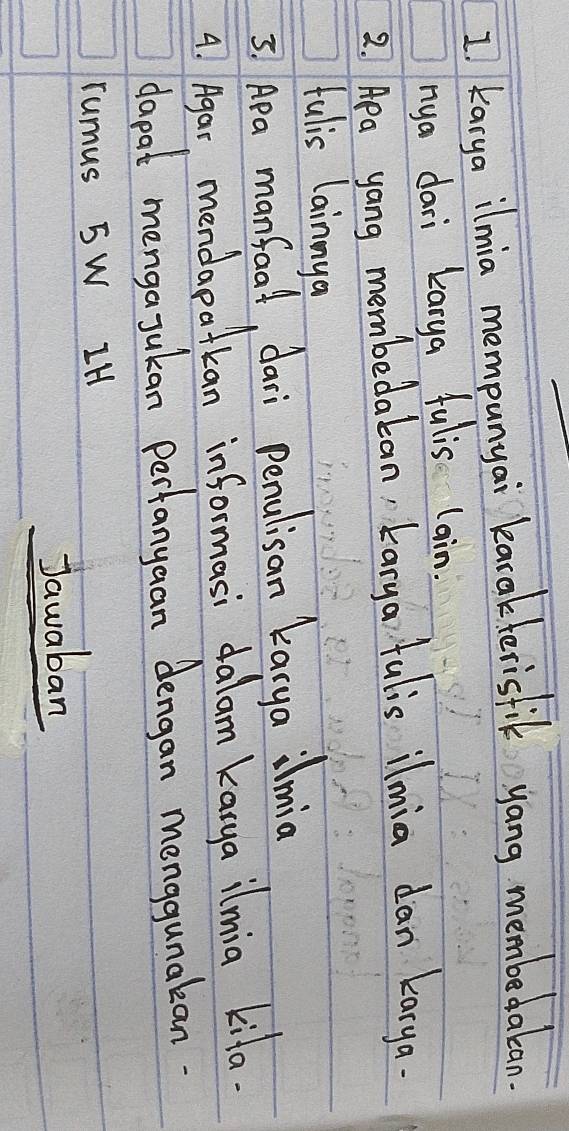 1. karya ilmia mempunyai karakteristik yang membedakan-
nya dari karya tulis lain.
2. Apa yang membedakan karya tulis ilmia dan karya-
tulis lainnya
3. Apa manfaat dari Penulisan karya ilmia
4. Agar mendapatkan informasi dalam karya ilmia kita-
dapat mengajukan Pertanyaan dengan menggunakan-
rumus 5W 1H
Jawaban